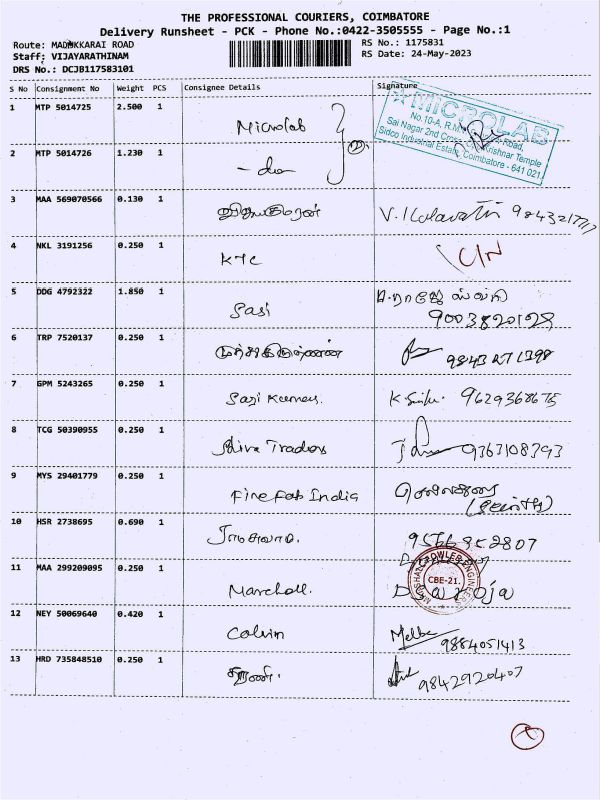 THE PROFESSIONAL COURIERS, COIMBATORE
Delivery Runsheet - PCK - Phone No.:0422-3505555 - Page No.:1
Route: MADUKKARAI ROAD
RS No.: 1175831
Staff: VIJAYARATHINAM
RS Date: 24-May-2023
DRS No.: DCJB117583101
S No Consignment No Weight PCS Consignee Details Signature
1 MTP 5014725 2.500 1 Microlab
MICROLAB
No.10-A, R.M. Road,
Sai Nagar 2nd Cross, Krishnar Temple
Sidco Industrial Estate, Coimbatore - 641 021.
2 MTP 5014726 1.230 1 - do
3 MAA 569070566 0.130 1 V. Kalavathi
4 NKL 3191256 0.250 1 KTC
5 DDG 4792322 1.850 1 Sasi
9003820128
6 TRP 7520137 0.250 1
7 GPM 5243265 0.250 1 Sasi Kumar. 9629368675
8 TCG 50390955 0.250 1 Shiva Traders 9363108393
9 MYS 29401779 0.250 1 Fine Fab India
10 HSR 2738695 0.690 1 9566352807
11 MAA 299209095 0.250 1 Marshall. Saroja
CBE-21.
12 NEY 50069640 0.420 1 Colvin 9884051413
13 HRD 735848510 0.250 1 9842920407